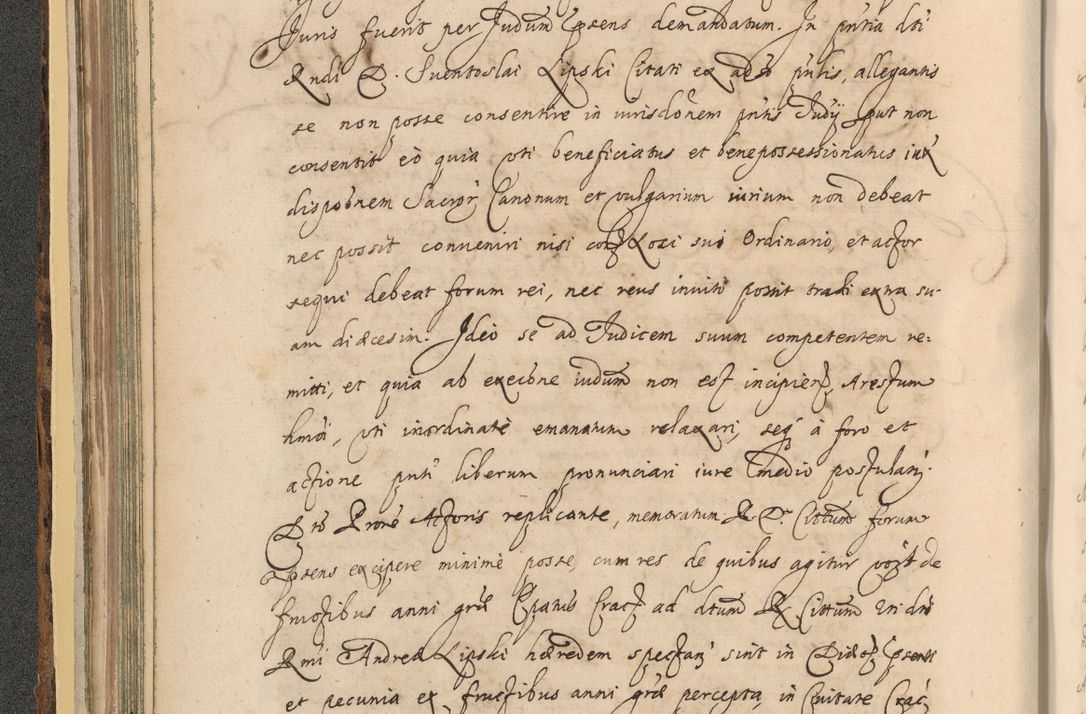 Juris fuerit per Judum Cpsens demandatum. In pntia dti
Rndi D. Suentoslai Lipski Citati ex adso pntis, allegantis
se non posse consentire in iurisdonem pntis Judy, put non
consentit eò quia vti beneficiatus et benepossessionatus iux
dispoonem Sacror Canonum et vulgarium iurium non debeat
nec possit conueniri nisi cor Loci sui Ordinario, et actor
sequi debeat forum rei, nec reus inuite possit trahi extra su-
am diæcesim. Ideo se ad Judicem suum competentem re-
mitti, et quia ab execone iudum non est incipien, Arestum
hmoi, vti inordinatè emanatum relaxari, seq à foro et
actione pnti liberum pronunciari iure medio postulan.
D to Prore Actoris replicante, memoratum R. D. Cittum forum
psens excipere minimè posse, cum res de quibus agitur vozt de
fructibus anni græ Epatus Crac ad dtum R Cittum vti dni
Rmi Andreæ Lipski hæredem spectan sint in Diæc psenti
et pecunia ex fructibus anni græ percepta, in Ciuitate Crac